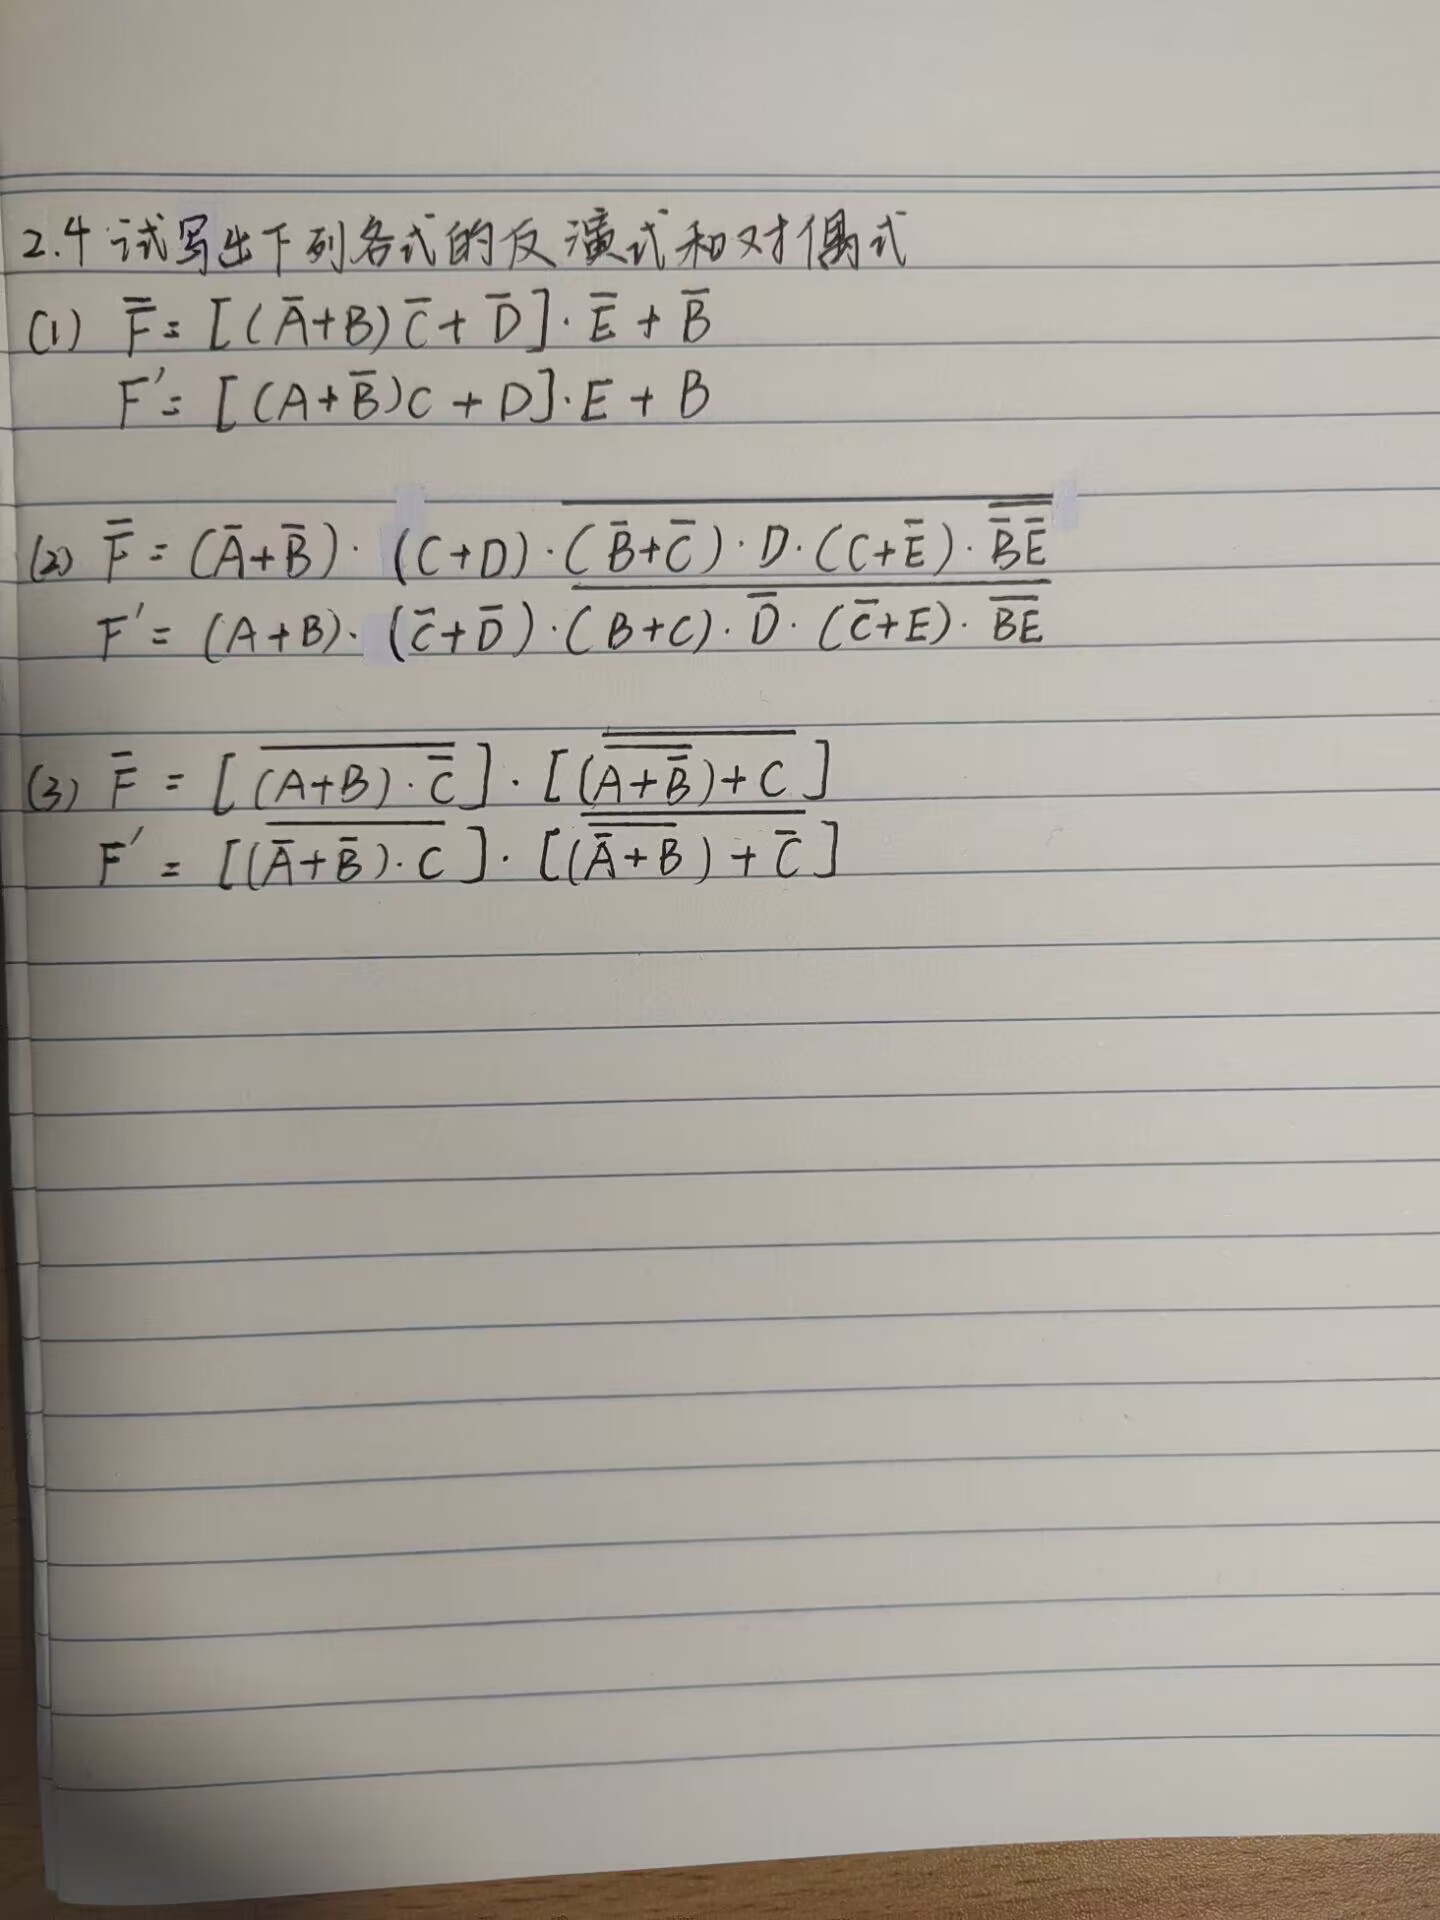 2.4 试写出下列各式的反演式和对偶式
(1) F̿ = [(A̅+B)C̅+D̅]·E̅+B̅
F′= [(A+B̅)C+D]·E+B
(2) F̿ = (A̅+B̅)·(C+D)·\overline{(B̅+C̅)·D·(C+E̅)·\overline{\overline{B̅E̅}}}
F′= (A+B)·(C̅+D̅)·\overline{(B+C)·D̅·(C̅+E)·\overline{BE}}
(3) F̅ = [\overline{(A+B)·C̿}]·[\overline{\overline{(\overline{A+B̅})+C}}]
F′ = [\overline{(A̅+B̅)·C}]·[\overline{\overline{(\overline{A̅+B})+C̅}}]